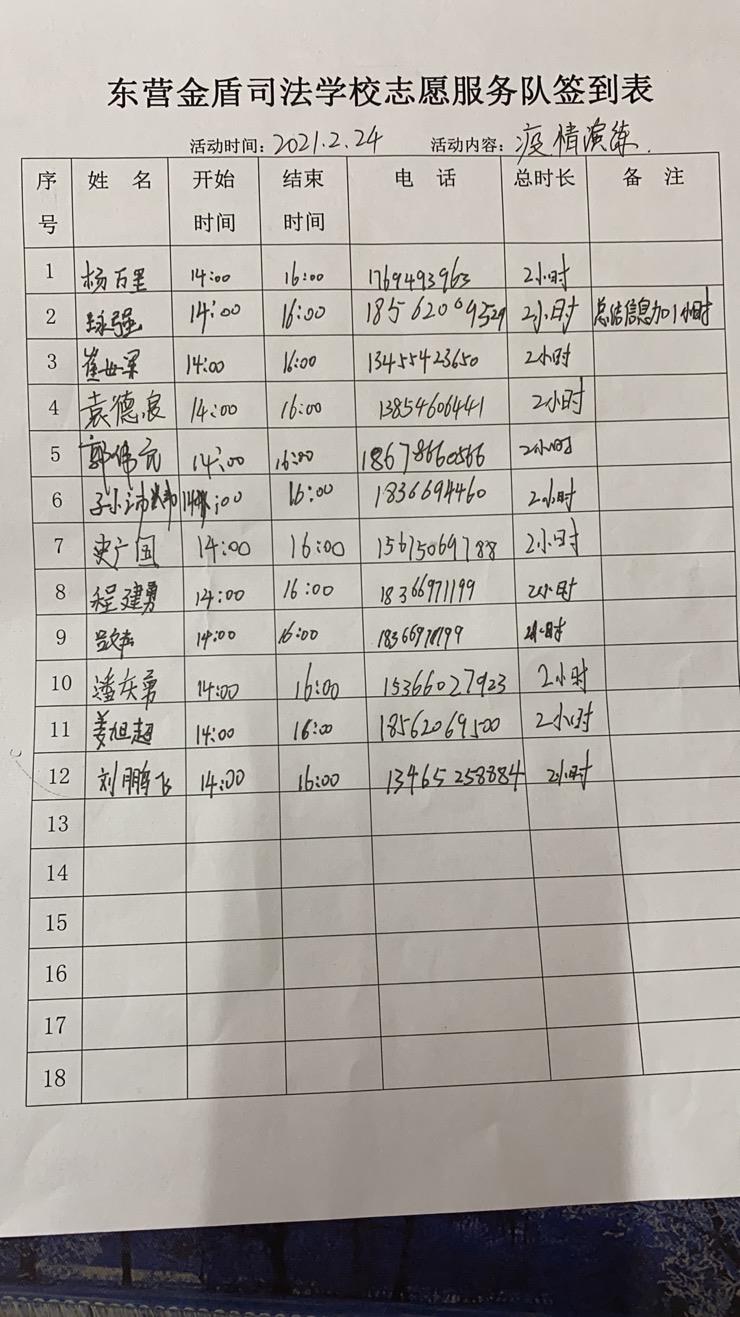 东营金盾司法学校志愿服务队签到表
活动时间：2021.2.24 活动内容：疫情演练.
序号 姓名 开始时间 结束时间 电话 总时长 备注
1 杨百里 14:00 16:00 1769493963 2小时
2 强 14:00 16:00 18562069529 2小时 总结信息加1小时
3 崔世梁 14:00 16:00 13455423650 2小时
4 袁德浪 14:00 16:00 13854606441 2小时
5 郭伟元 14:00 16:00 18678660566 2小时
6 :00 16:00 1836694460 2小时
7 史广国 14:00 16:00 15675069788 2小时
8 程建勇 14:00 16:00 18366971199 2小时
9 14:00 16:00 2小时
10 潘庆勇 14:00 16:00 15366027923 2小时
11 姜旭超 14:00 16:00 18562069500 2小时
12 刘鹏飞 14:00 16:00 13465258884 2小时
13
14
15
16
17
18